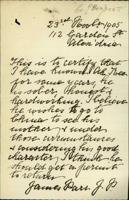 23rd
112 Garden St
This is to certify that
I have known
for some years, he
is sober, honest &
hardworking. I believe
he wishes to go to
China to see his
mother & under
those circumstances
& considering his good
character I think he
should get a permit
to return
James Parr. J.P.